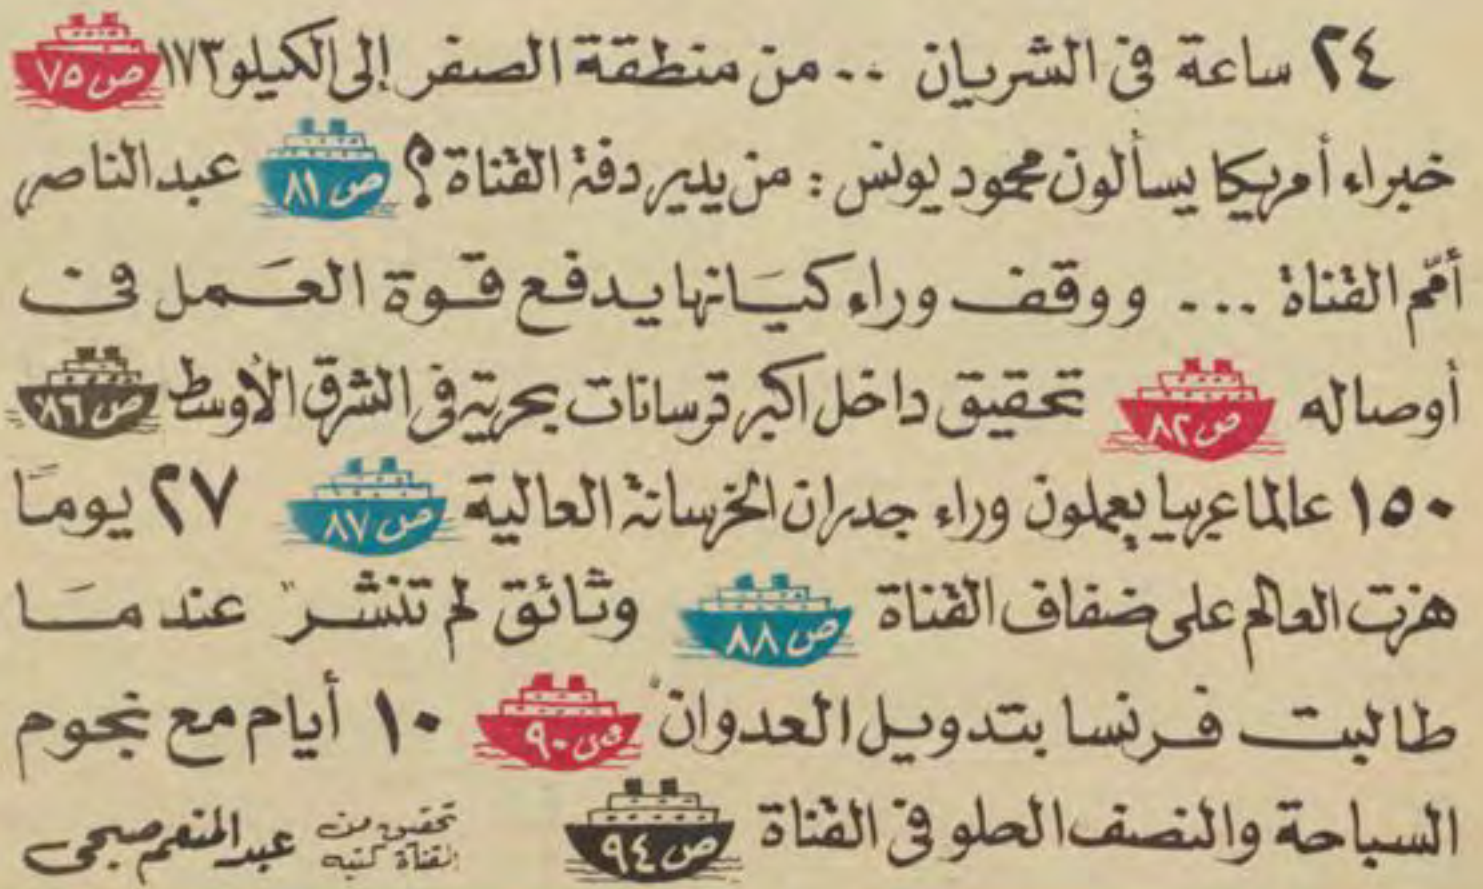 ٢٤ ساعة فى الشريان .. من منطقة الصفر إلى الكيلو ١٧٣ ص ٧٥
خبراء أمريكا يسألون محمود يونس : من يدير دفة القناة ؟ ص ٨١ عبد الناصر
أمّم القناة ... ووقف وراء كيانها يدفع قوة العمل فى
أوصاله ص ٨٢ تحقيق داخل اكبر ترسانات بحرية فى الشرق الأوسط ص ٨٦
١٥٠ عالما عربيا يعملون وراء جدران الخرسانة العالية ص ٨٧ ٢٧ يوما
هزت العالم على ضفاف القناة ص ٨٨ وثائق لم تنشر " عندما
طالبت فرنسا بتدويل العدوان " ص ٩٠ ١٠ أيام مع نجوم
السباحة والنصف الحلو فى القناة ص ٩٤ تحقيق من القناة كتبه عبد المنعم صبحى